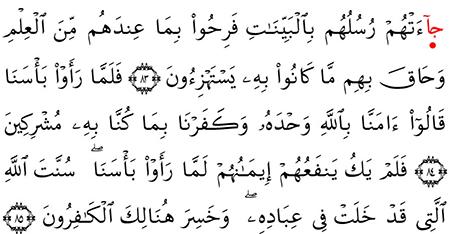 جَآءَتْهُمْ رُسُلُهُم بِٱلْبَيِّنَٰتِ فَرِحُوا۟ بِمَا عِندَهُم مِّنَ ٱلْعِلْمِ
وَحَاقَ بِهِم مَّا كَانُوا۟ بِهِۦ يَسْتَهْزِءُونَ ﴿٨٣﴾ فَلَمَّا رَأَوْا۟ بَأْسَنَا
قَالُوٓا۟ ءَامَنَّا بِٱللَّهِ وَحْدَهُۥ وَكَفَرْنَا بِمَا كُنَّا بِهِۦ مُشْرِكِينَ
﴿٨٤﴾ فَلَمْ يَكُ يَنفَعُهُمْ إِيمَٰنُهُمْ لَمَّا رَأَوْا۟ بَأْسَنَا ۖ سُنَّتَ ٱللَّهِ
ٱلَّتِى قَدْ خَلَتْ فِى عِبَادِهِۦ ۖ وَخَسِرَ هُنَالِكَ ٱلْكَٰفِرُونَ ﴿٨٥﴾